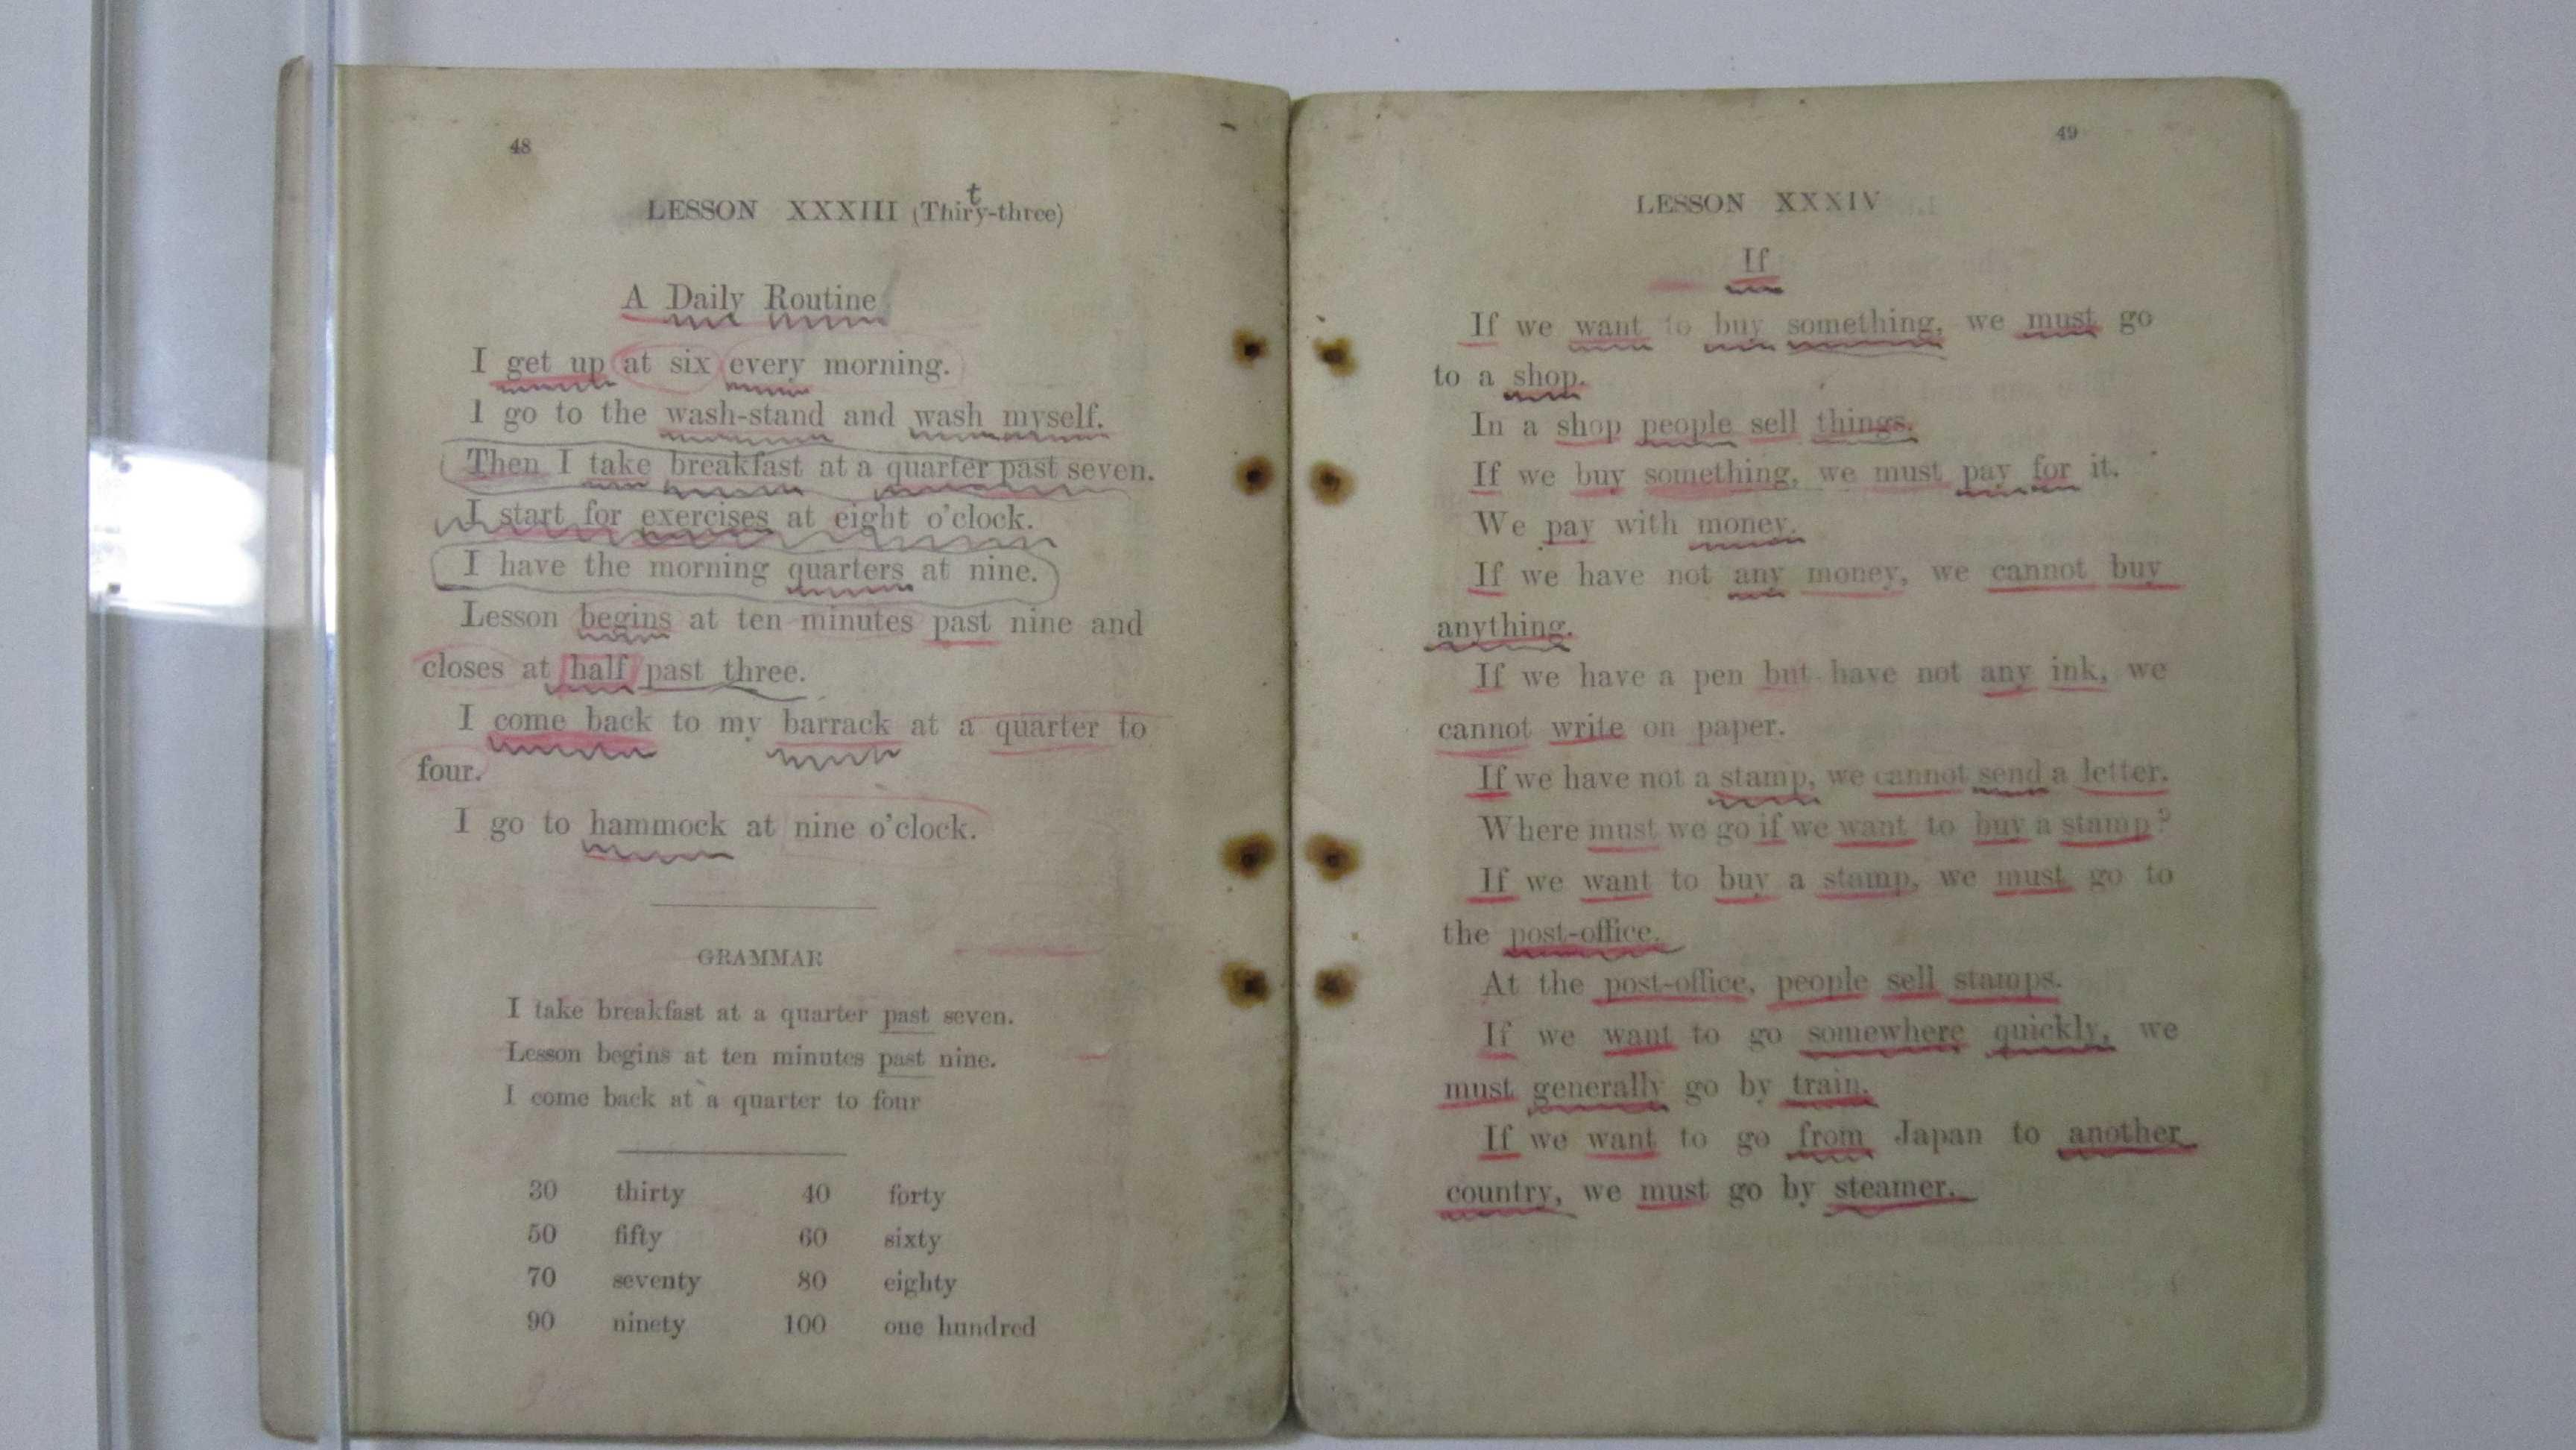 48
LESSON XXXIII (Thirty-three)
A Daily Routine
I get up at six every morning.
I go to the wash-stand and wash myself.
Then I take breakfast at a quarter past seven.
I start for exercises at eight o'clock.
I have the morning quarters at nine.
Lesson begins at ten minutes past nine and
closes at half past three.
I come back to my barrack at a quarter to
four.
I go to hammock at nine o'clock.
GRAMMAR
I take breakfast at a quarter past seven.
Lesson begins at ten minutes past nine.
I come back at a quarter to four
30 thirty 40 forty
50 fifty 60 sixty
70 seventy 80 eighty
90 ninety 100 one hundred
49
LESSON XXXIV
If
If we want to buy something, we must go
to a shop.
In a shop people sell things.
If we buy something, we must pay for it.
We pay with money.
If we have not any money, we cannot buy
anything.
If we have a pen but have not any ink, we
cannot write on paper.
If we have not a stamp, we cannot send a letter.
Where must we go if we want to buy a stamp?
If we want to buy a stamp, we must go to
the post-office.
At the post-office, people sell stamps.
If we want to go somewhere quickly, we
must generally go by train.
If we want to go from Japan to another
country, we must go by steamer.